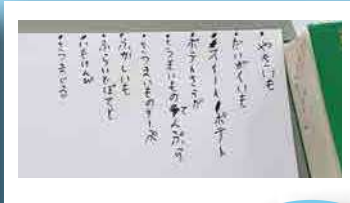 ・やきいも
・だいがくいも
・スイートポテト
・ポテトサラダ
・さつまいものてんぷら
・さつまいものスープ
・ふかしいも
・ふらいどぽてと
・いもけんぴ